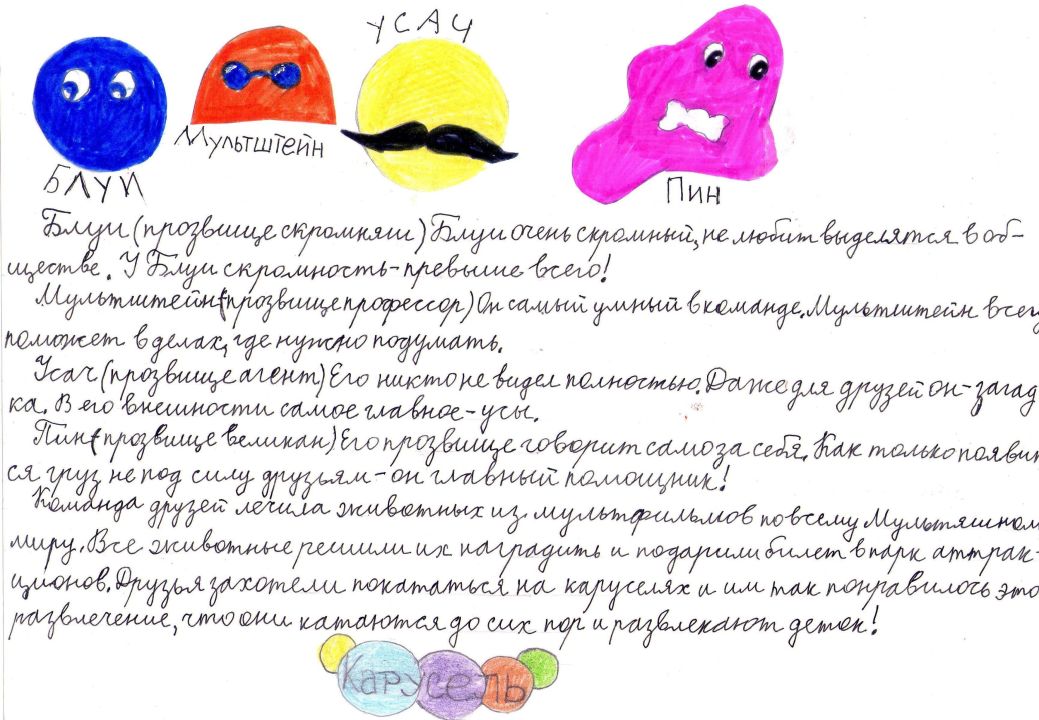 УСАЧ
БЛУИ
Мультштейн
Пин
Блуи (прозвище скромняш) Блуи очень скромный, не любит выделятся в об-
ществе. У Блуи скромность-превыше всего!
Мультштейн (прозвище профессор) Он самый умный в команде. Мультштейн всегд
поможет в делах, где нужно подумать.
Усач (прозвище агент) Его никто не видел полностью. Даже для друзей он-загад
ка. В его внешности самое главное-усы.
Пин (прозвище великан) Его прозвище говорит само за себя. Как только появит
ся груз не под силу друзьям-он главный помощник!
Команда друзей лечила животных из мультфильмов по всему Мультяшном
миру. Все животные решили их наградить и подарили билет в парк аттрак-
ционов. Друзья захотели покататься на каруселях и им так понравилось это
развлечение, что они катаются до сих пор и развлекают деток!
Карусель